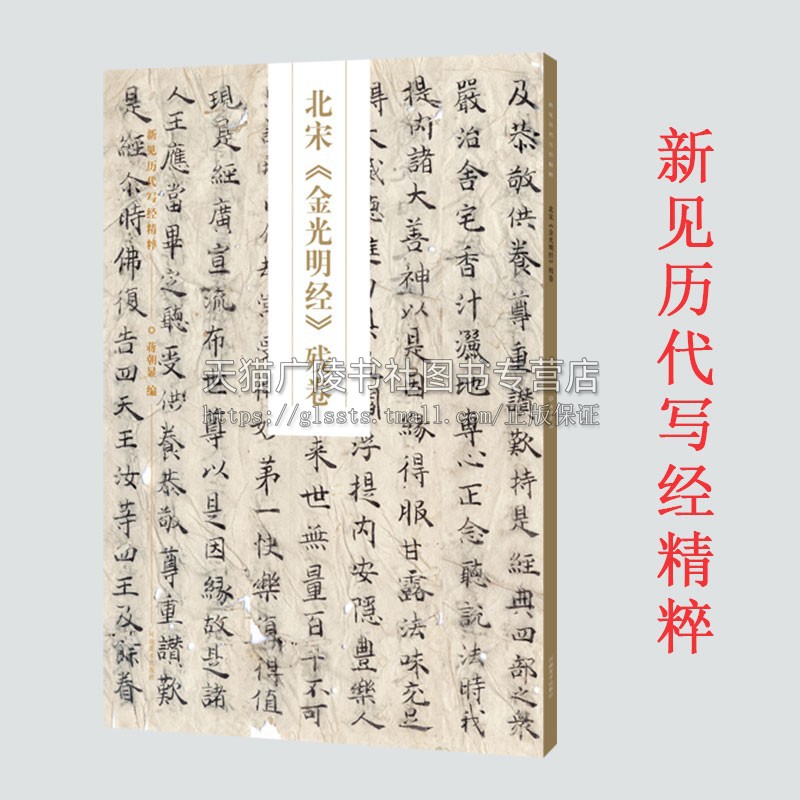 新见历代写经精粹
北宋《金光明经》残卷
新见历代写经精粹
蒋朝显 编
及恭敬供養尊重讚歎持是經典四部之衆
嚴治舍宅香汁灑地專心正念聽說法時我
提內諸大善神以是因緣得服甘露法味充足
得大威德進力具 閻浮提内安隱豐樂人
來世無量百千不可
第一快樂復得值
現是經廣宣流布世尊以是因緣故是諸
人王應當畢定聽受供養恭敬尊重讚歎
是經尒時佛復告四天王汝等四王及餘眷
北宋《金光明经》残卷
天猫广陵书社图书专营店
https://glssts.tmall.com/正版保证